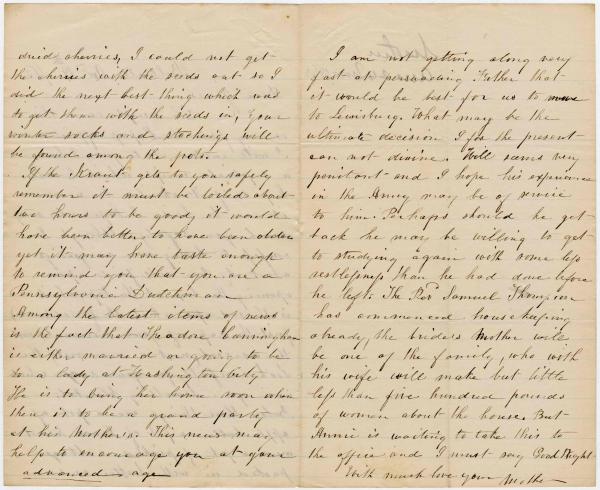 dried cherries, I could not get
the cherries with the seeds out so I
did the next best thing which was
to get them with the seeds in, Your
winter socks and stockings will
be found among the pots.
If the Kraut gets to you safely
remember it must be boiled about
two hours to be good, it would
have been better to have been older
yet it may have taste enough
to remind you that you are a
Pennsylvania Dutchman
Among the latest items of news
is the fact that Theodore Cunningham
is either married or going to be
to a lady at Washington City
He is to bring her home soon when
there is to be a grand party
at his Mothers. This news may
help to encourage you at your
advanced age
I am not getting along very
fast at persuading Father that
it would be best for us to move
to Lewisburg. What may be the
ultimate decision I for the present
can not divine. Will seems very
penitant and I hope his experience
in the Army may be of service
to him. Perhaps should he get
back he may be willing to get
to studying again with some less
restlessness than he had done before
he left. The Rev Samuel Thompson
has commenced housekeeping
already, the brides Mother will
be one of the family, who with
his wife will make but little
less than five hundred pounds
of women about the house. But
Annie is waiting to take this to
the office and I must say Good Night
With much love your Mother